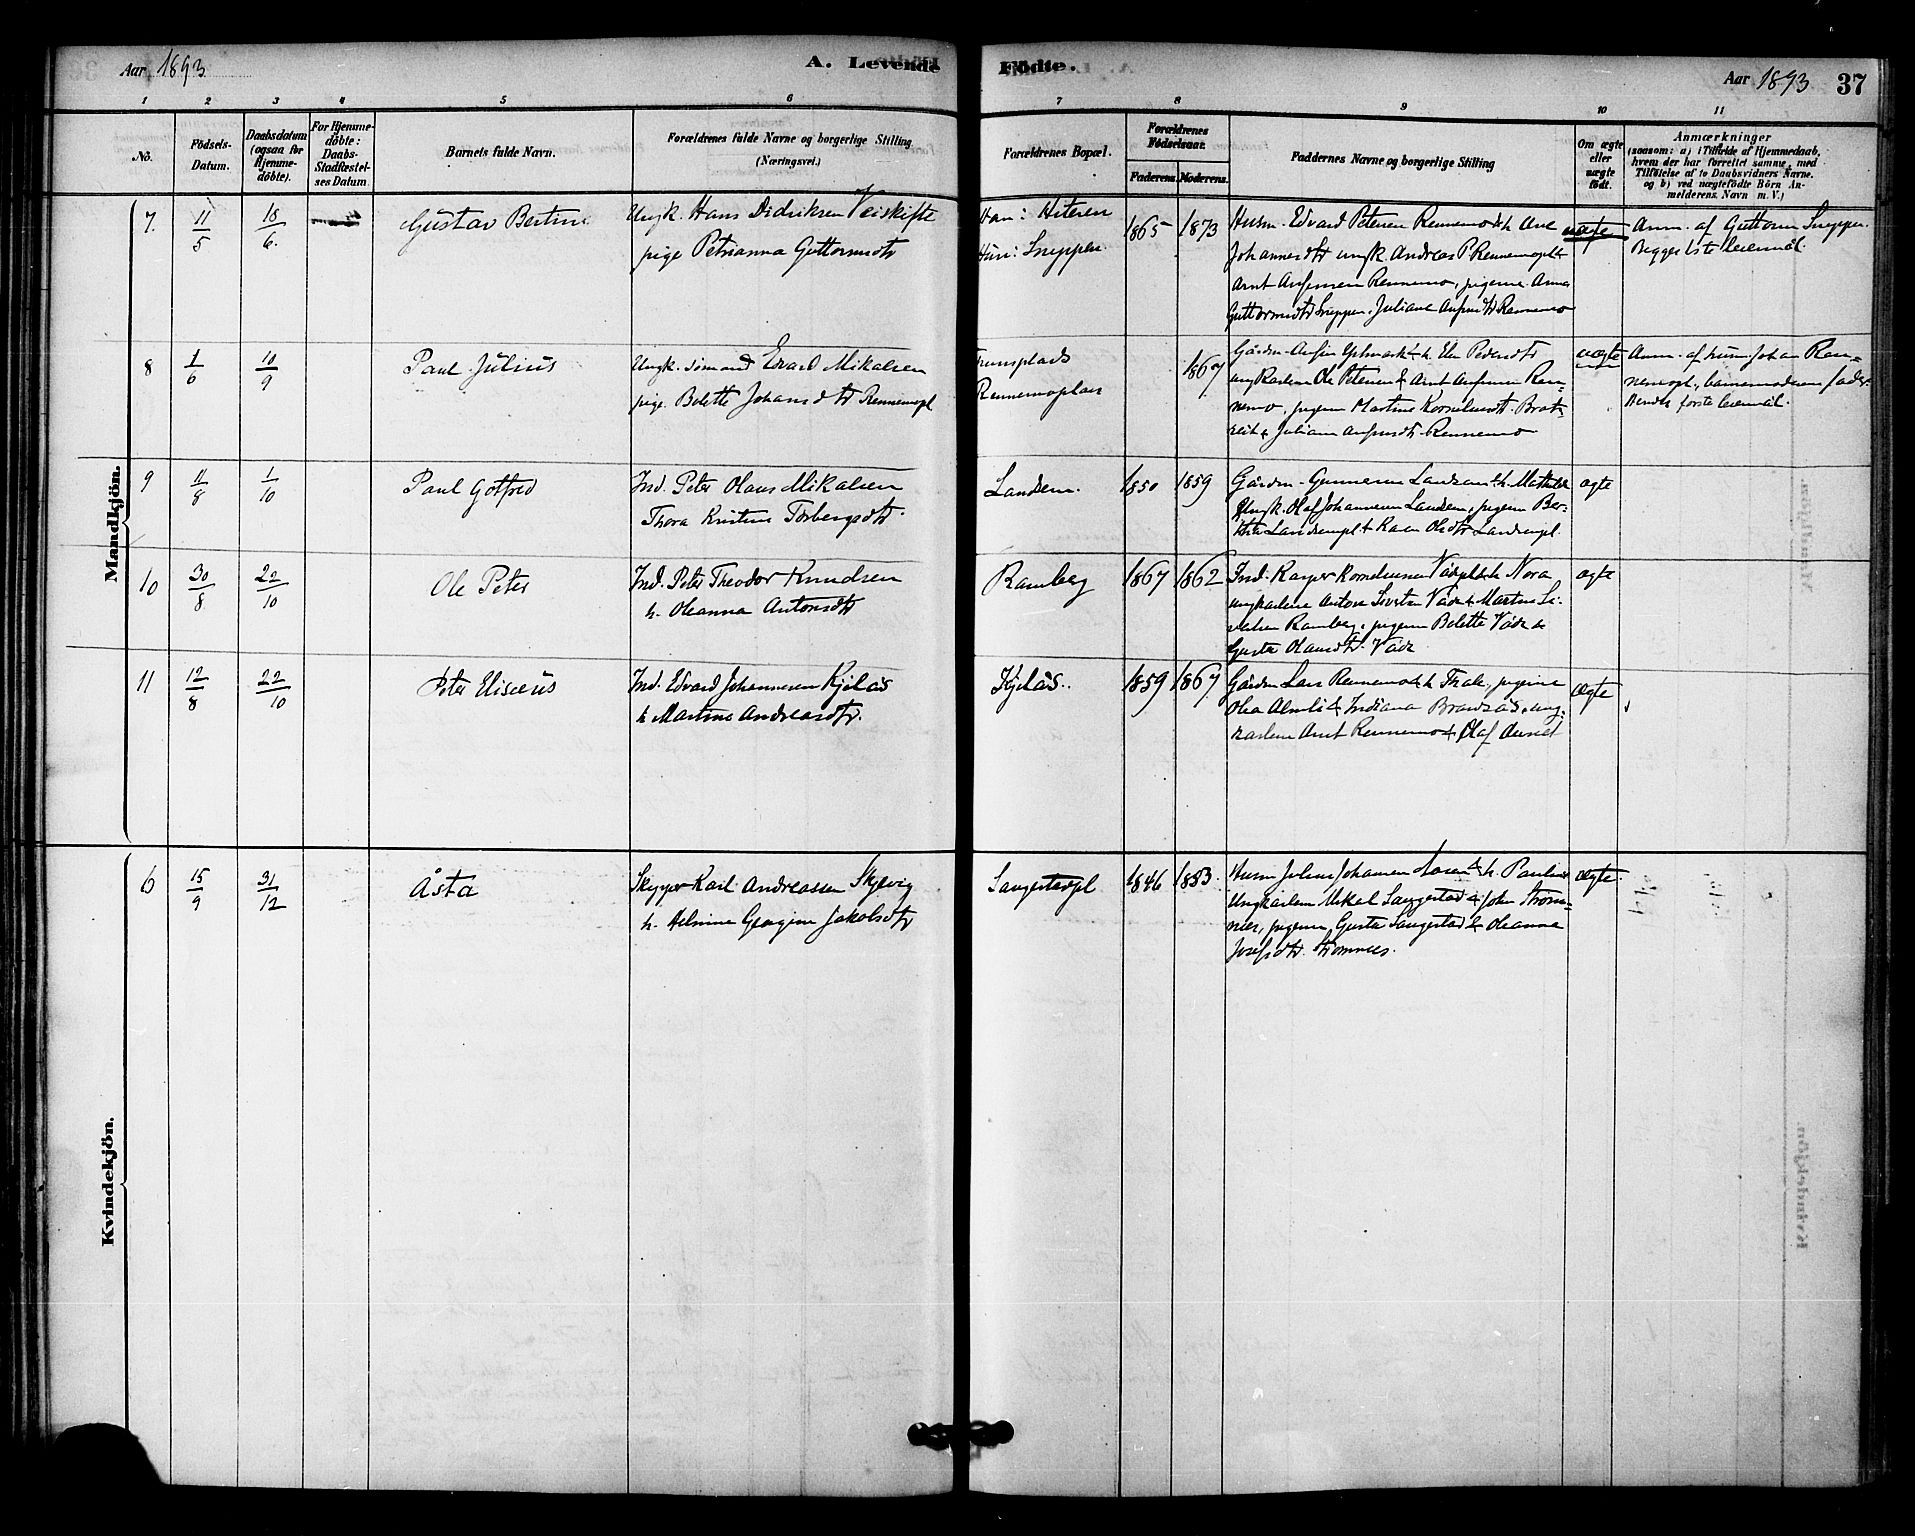 Aar 1893
A. Levende Födte.
Aar 1893 37
1 2 3 4 5 6 7 8 9 10 11
No.
Födsels-Datum.
Daabsdatum (ogsaa for Hjemme-döbte).
For Hjemme-döbte: Daabs-Stadfæstel-ses Datum
Barnets fulde Navn.
Forældrenes fulde Navne og borgerlige Stilling
(Næringsvei.)
Forældrenes Bopæl.
Forældrenes Födselsaar.
Faderens. Moderens.
Faddernes Navne og borgerlige Stilling
Om ægte eller uægte födt.
Anmærkninger
(saasom: a) i Tilfælde af Hjemmedaab,
hvem der har forrettet samme, med
Tilföielse af to Daabsvidners Navne.
og b) ved uægtefödte Börn An-
melderens. Navn m. V.)
Mandkjön.
7. 11/5 18/6.
Gustav Bertin
Ungk. Hans Didriksen Veiskifte
pige Petrianna Guttormsdtr
Han: Hiteren
Hun: Sneppen
1865 1873
Husm. Edvard Petersen Rennemo & h. Ane
Johannesdtr ungk. Andreas P Rennemopl &
Arnt Anfinsen Rennemo, pigerne Anna
Guttormsdtr Sneppen, Juliane Anfinsdtr Rennemo
uægte
Anm. af Guttorm Sneppen.
Begges 1ste leiermål.
8 1/6 10/9
Paul Julius
Ungk. sömand Edvard Mikalsen
pige Bolette Johansdtr Rennemopl
Rennemoplan
1867
Gårdm. Anfin h. Elen Pedersdtr
ungkarlene Ole Petersen & Arnt Anfinsen Ren-
nemo, pigerne Martine Kornelius dtr. Brat-
reit & Juliane Anfinsdtr. Rennemo
uægte
Anm. af husm. Johan Ren-
nemopl, barnemoderens fader.
Hendes förste leiermål.
9 11/8 1/10
Paul Gotfred
Ind. Peter Olaus Mikalsen
Thora Kristine Torbergsdtr.
Landsem.
1850 1859
Gårdm. Gunnerus Landsem & h. Mathilde
Ungk. Olaf Johannesen Landsem, pigerne Ber-
Landsempl & Karen Olsdtr Landsempl.
ægte
10 30/8 22/10
Ole Peter
Ind. Peter Theodor Knudsen
h. Oleanna Antonsdtr
Ramberg
1867 1862
Ind. Kasper Korneliussen h. Nora
ungkarlene Anton Sivertsen & Martin Si-
vertsen Ramberg, pigerne Bolette &
Gusta Olausdtr.
ægte
11 12/8 22/10
Peter Elisæus
Ind. Edvard Johannesen Kjelås
h. Martine Andreasdtr.
Kjelås.
1859 1867
Gårdm Lars Rennemo & h. Thale, pigerne
Olea Almli & Indiana ung-
karlene Arnt Rennemo & Olaf
ægte
Kvindekjön.
6 15/9 31/12
Åsta
Skipper Karl Andreassen Skjelvig
h. Helmine Georgine Jakobsdtr
Saugestadpl
1846 1853.
Husm Julius Johansen & h. Pauline
Ungkarlene Mikal Saugestad & John Ström-
nes, pigerne Gusta Saugestad & Oleanna
Josefsdtr. Strömnes.
ægte.